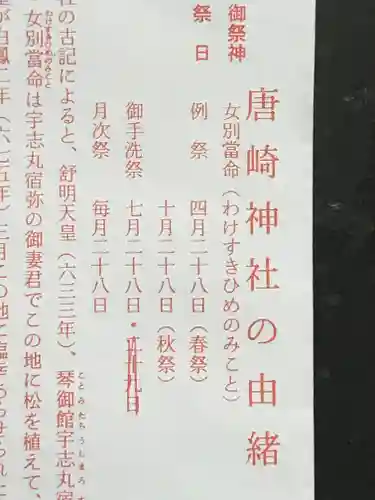 唐崎神社の由緒
御祭神　女別當命（わけすきひめのみこと）
祭日　例祭　四月二十八日（春祭）
十月二十八日（秋祭）
御手洗祭　七月二十八日・二十九日
月次祭　毎月二十八日
社の古記によると、舒明天皇（六三三年）、琴御館宇志丸宿
ことみたちうしまろす
女別當命は宇志丸宿弥の御妻君でこの地に松を植えて、
わけすきひめのみこと
白鳳二年（六七五年）三月この地に臨幸あらせられ